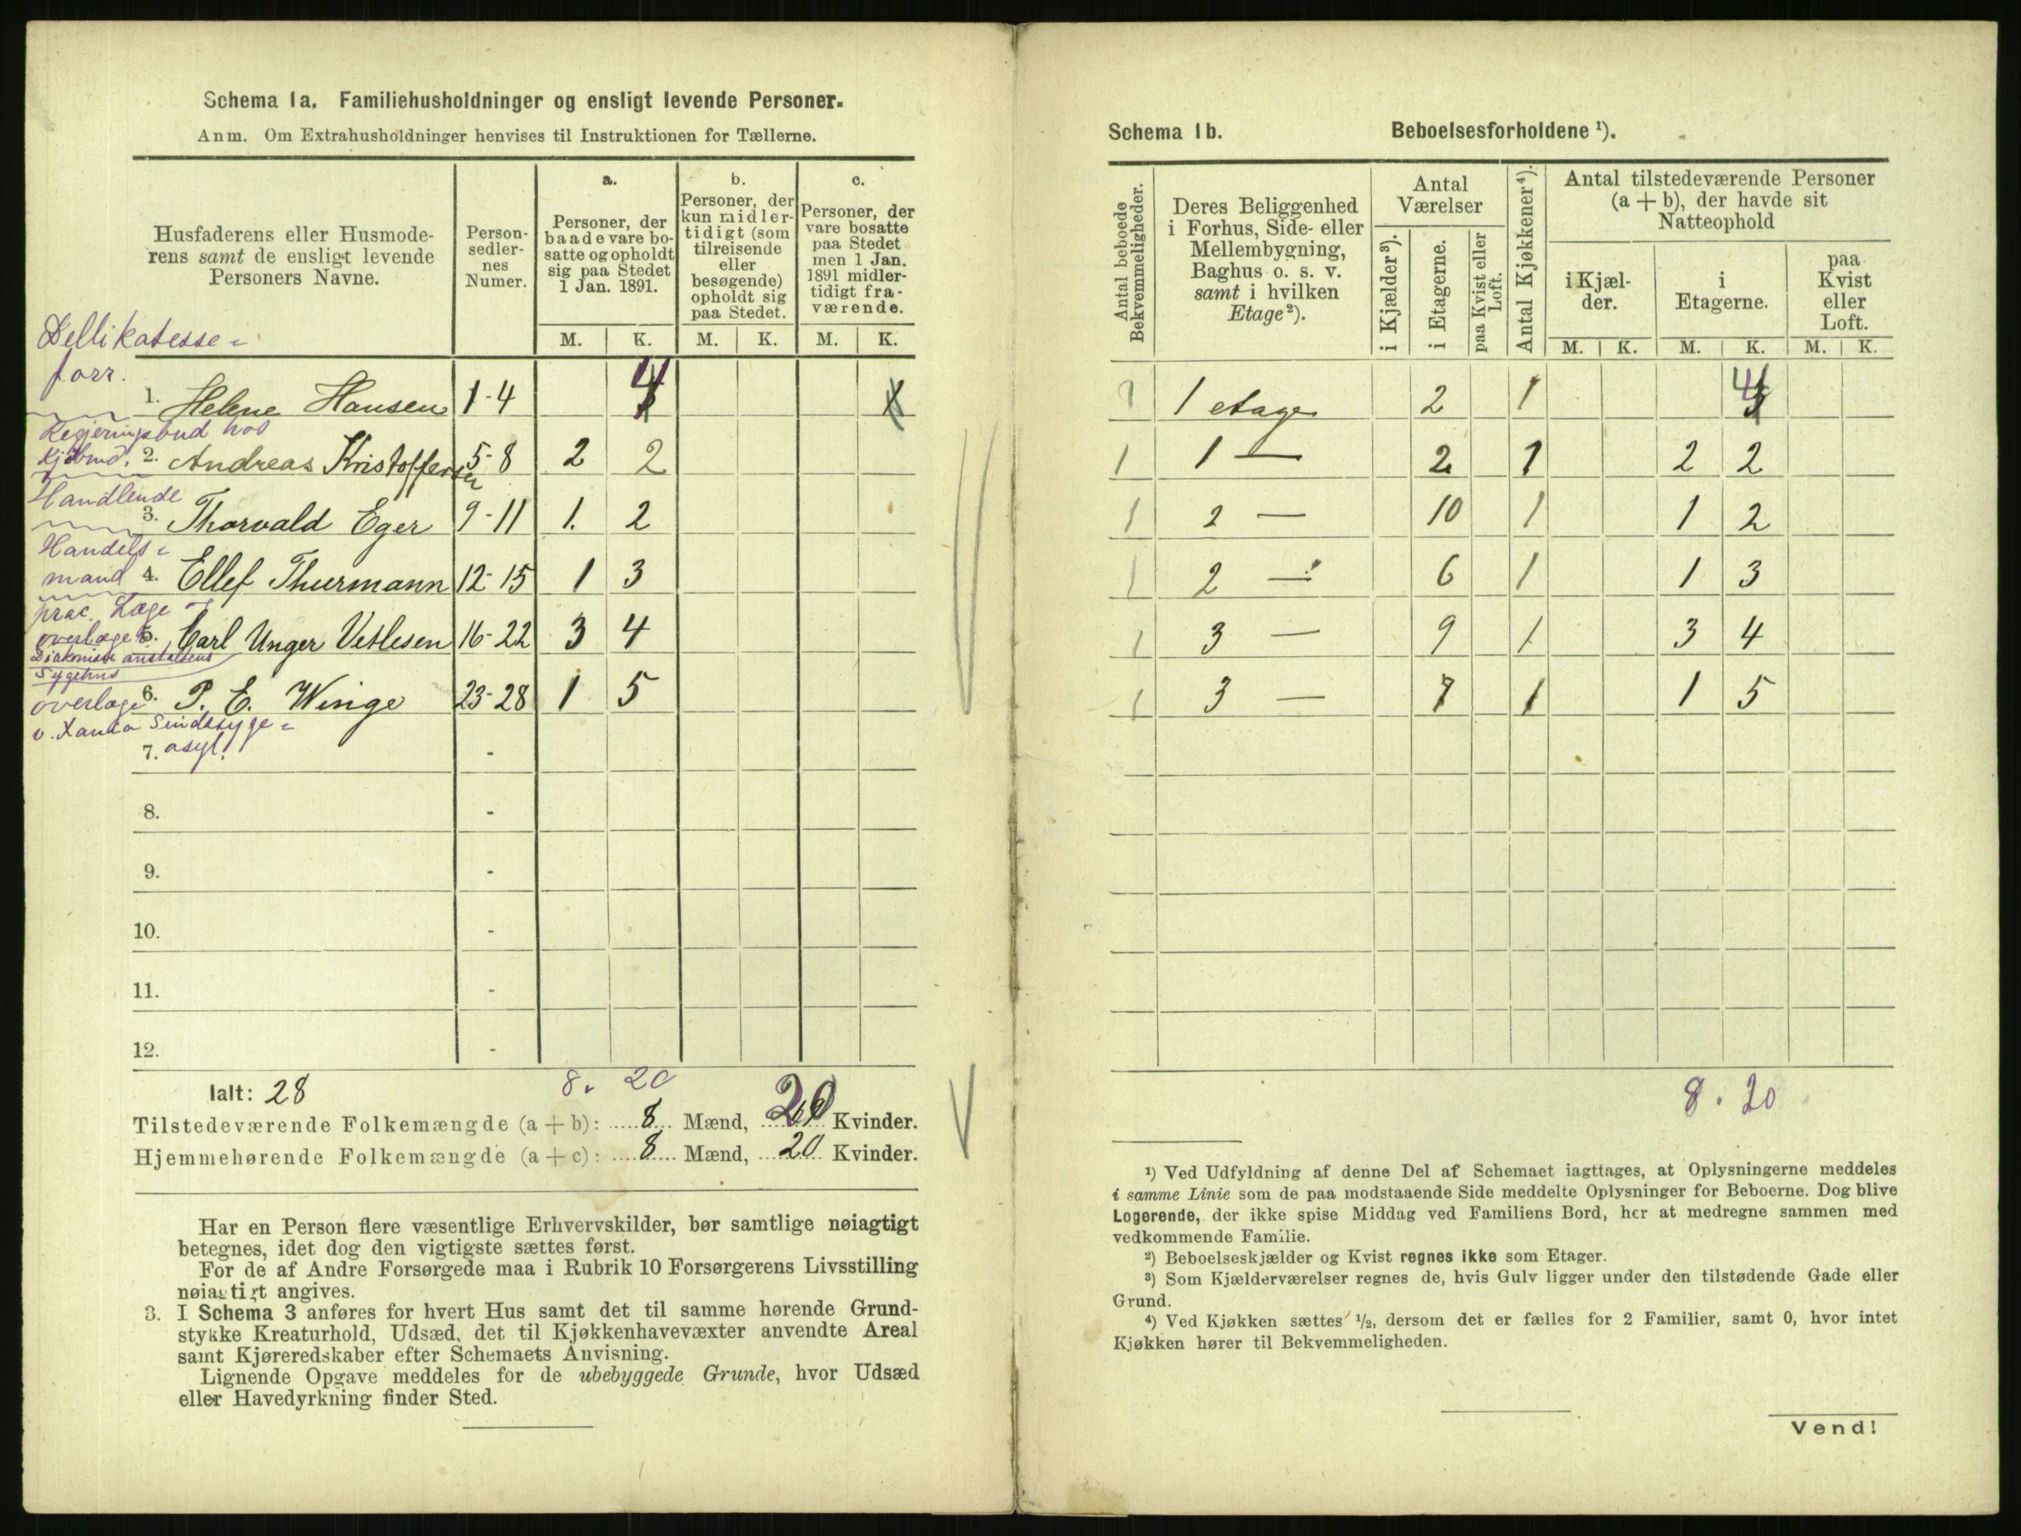 Schema 1a. Familiehusholdninger og ensligt levende Personer.
Anm. Om Extrahusholdninger henvises til Instruktionen for Tællerne.
Husfaderens eller Husmode-
rens samt de ensligt levende
Personers Navne.
Person-
sedler-
nes
Numer.
a.
Personer, der
baade vare bo-
satte og opholdt
sig paa Stedet
1 Jan. 1891.
b.
Personer, der
kun midler-
tidigt (som
tilreisende
eller
besøgende)
opholdt sig
paa Stedet.
c.
Personer, der
vare bosatte
paa Stedet
men 1 Jan.
1891 midler-
tidigt fra-
værende.
M. K. M. K. M. K.
Dellikatesse-
forr.
1. Helene Hansen 1-4 4
Regjeringsbud hos
2. Andreas Kristoffersen 5-8 2 2
Handlende
3. Thorvald Eger 9-11 1. 2
Handels-
mand 4. Ellef Thurmann 12-15 1 3
prac. Læge
overlæge
5. Carl Unger Vetlesen 16-22 3 4
Sygehus
overlæge 6. P. E. Winge 23-28 1 5
Sindssyge-
7. asyl. -
8. -
9. -
10. -
11. -
12. -
Ialt: 28 8. 20
Tilstedeværende Folkemængde (a + b): 8 Mænd, 20 Kvinder.
Hjemmehørende Folkemængde (a + c): 8 Mænd, 20 Kvinder.
Har en Person flere væsentlige Erhvervskilder, bør samtlige nøiagtigt
betegnes, idet dog den vigtigste sættes først.
For de af Andre Forsørgede maa i Rubrik 10 Forsørgerens Livsstilling
nøiagtigt angives.
3. I Schema 3 anføres for hvert Hus samt det til samme hørende Grund-
stykke Kreaturhold, Udsæd, det til Kjøkkenhavevæxter anvendte Areal
samt Kjøreredskaber efter Schemaets Anvisning.
Lignende Opgave meddeles for de ubebyggede Grunde, hvor Udsæd
eller Havedyrkning finder Sted.
Schema 1b. Beboelsesforholdene ¹).
Antal beboede
Bekvemmeligheder.
Deres Beliggenhed
i Forhus, Side- eller
Mellembygning,
Baghus o. s. v.
samt i hvilken
Etage²).
Antal
Værelser
i Kjælder³).
i Etagerne.
paa Kvist eller
Loft.
Antal Kjøkkener⁴).
Antal tilstedeværende Personer
(a + b), der havde sit
Natteophold
i Kjæl-
der.
i
Etagerne.
paa
Kvist
eller
Loft.
M. K. M. K. M. K.
1 1 etage 2 1 4
1 1 — 2 1 2 2
1 2 — 10 1 1 2
1 2 — 6 1 1 3
1 3 — 9 1 3 4
1 3 — 7 1 1 5
8. 20
¹) Ved Udfyldning af denne Del af Schemaet iagttages, at Oplysningerne meddeles
i samme Linie som de paa modstaaende Side meddelte Oplysninger for Beboerne. Dog blive
Logerende, der ikke spise Middag ved Familiens Bord, her at medregne sammen med
vedkommende Familie.
²) Beboelseskjælder og Kvist regnes ikke som Etager.
³) Som Kjælderværelser regnes de, hvis Gulv ligger under den tilstødende Gade eller
Grund.
⁴) Ved Kjøkken sættes ½, dersom det er fælles for 2 Familier, samt 0, hvor intet
Kjøkken hører til Bekvemmeligheden.
Vend!